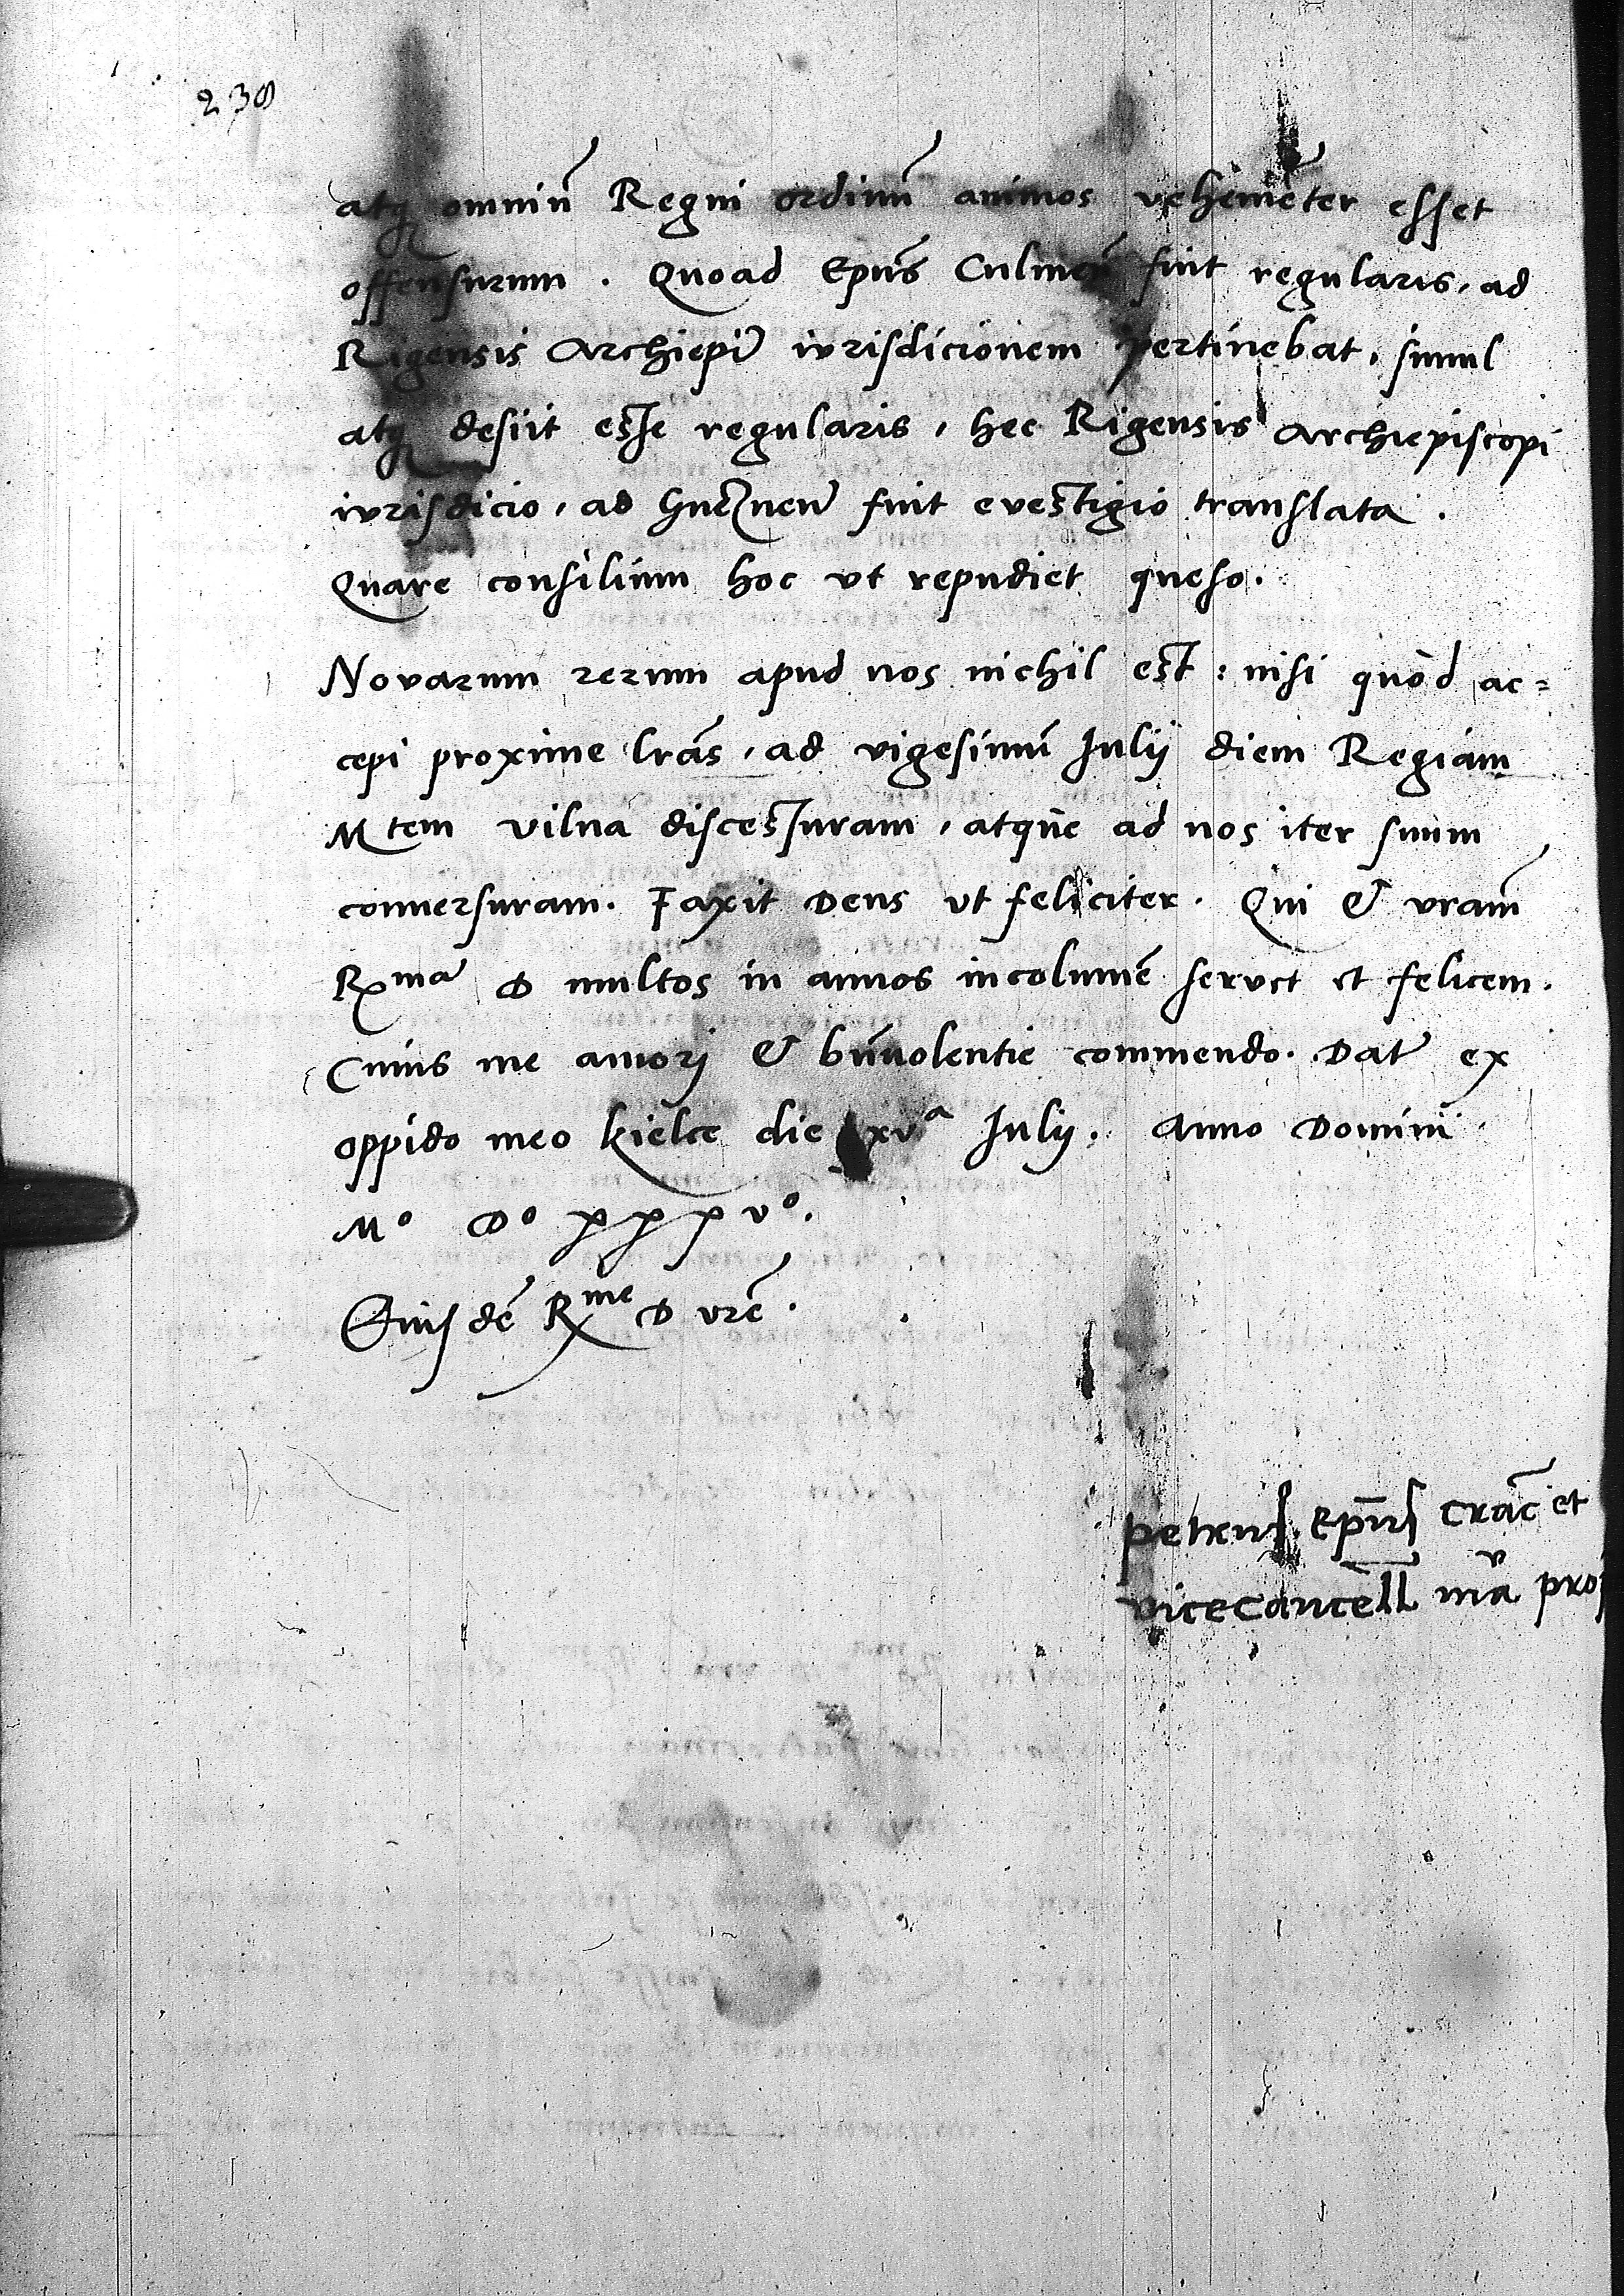 238
atq̃ omniũ Regni ordinũ animos vehemẽter esset
offensurum. Quoad Ep̃us Culmeñ fuit regularis, ad
Rigensis Archiep̃i iurisdicionem pertinebat, simul
atq̃ desiit esse regularis, hec Rigensis Archiepiscopi
iurisdicio, ad Gneznen̄ fuit evestigio translata.
Quare consilium hoc ut repudiet queso.
Novarum rerum apud nos nichil est: nisi quòd ac=
cepi proxime lrãs, ad vigesimũ Julij diem Regiam
Mtem vilna discessuram, atque ad nos iter suum
conuersuram. Faxit Deus ut feliciter. Qui & vram̃
Rmã D multos in annos incolumẽ servet et felicem.
Cuius me amorj & bñuolentie commendo. Dat̃ ex
oppido meo kielce die xvᵃ Julij. Anno Domini
Mº Dº xxxvº.
Eiusdẽ Rme D vrẽ.
petrus Ep̃us Crac̃ et
vicecancell̃ mã pro